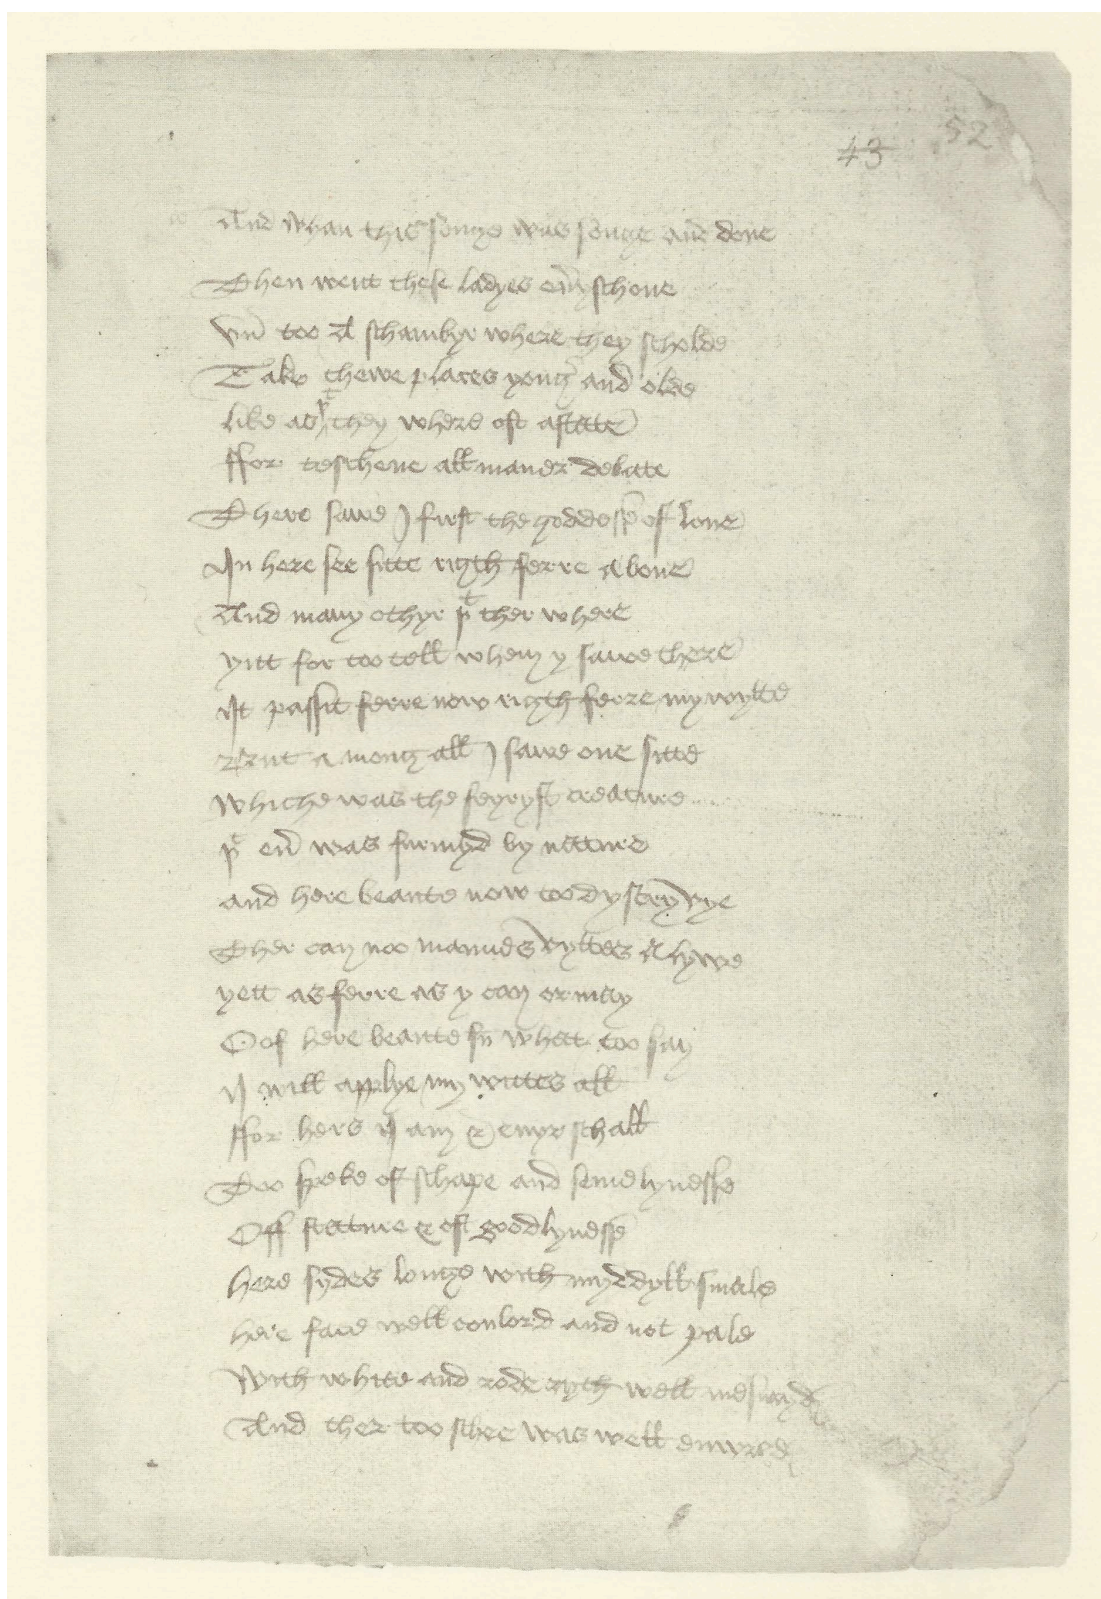 43 52
And whan this songe was songe and done
Then went these ladyes eu̅ychone
Vn̅ too A schambyr where they scholde
Take thewe places yong and olde
like as þͭ they where off astate
ffor tescheue all maner debate
There sawe J first the goddesse of loue
In here see sitte rigth ferre A boue
And many othyr þͭ ther where
yitt for too tell whom y sawe there
It passit ferre now rigth ferre my wytte
But a mong all J sawe one sitte
Whiche was the feyryst creature
þͭ eu̅ was furmyd by nature
and here beaute now too dyscryvye
Ther can noo mannes wyttes A lywe
yett as ferre as y can or may
Oof here beaute su̅ what too say
I will applye my wittes all
ffor hers I am & euyr schall
Too speke off schape and semelynesse
Off stature & off goodlynesse
here sydes longe with myddyll smale
here face well coulord and not pale
With white and rode ryth well mesuryd
And ther too schee was well emyred